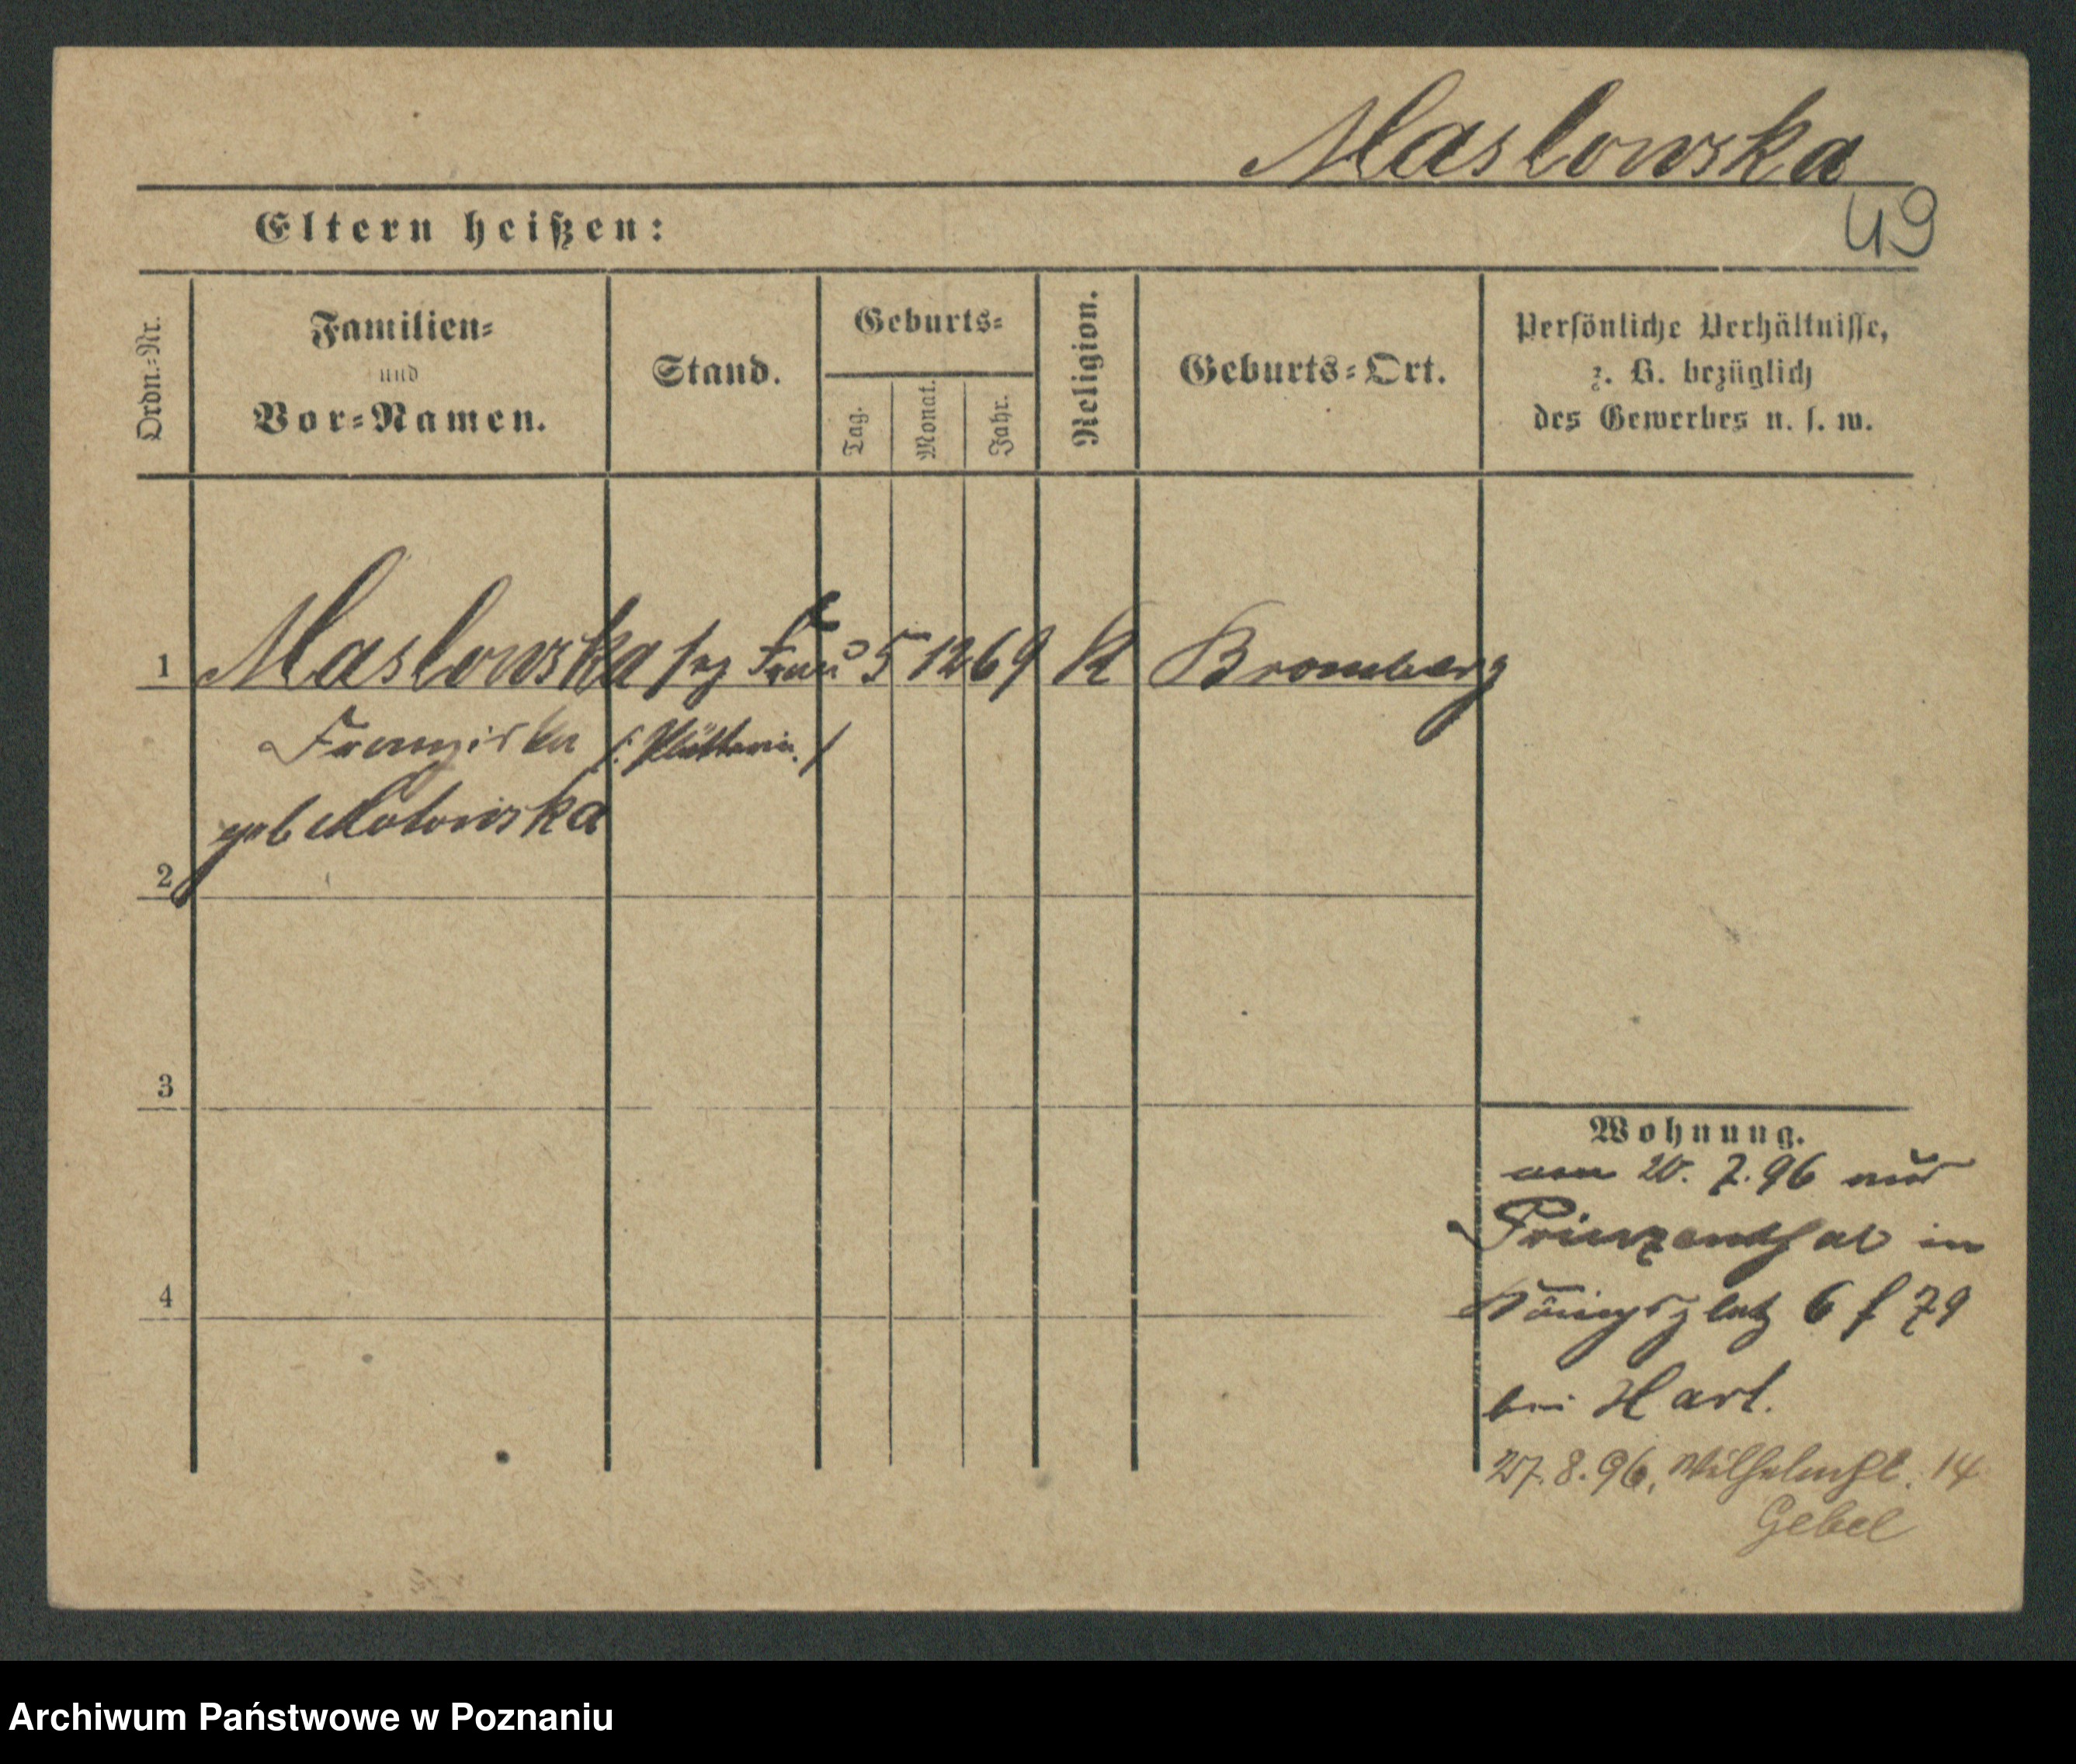 Maslowska
49
Eltern heißen:
Ordn.=Nr.
Familien=
und
Vor=Namen.
Stand.
Geburts=
Tag.
Monat.
Jahr.
Religion.
Geburts=Ort.
Persönliche Verhältnisse,
z. B. bezüglich
des Gewerbes u. s. w.
1 Maslowska Frau 5 12 69 K Bromberg
Franziska /: Plätterin. /
geb
2
3
4
Wohnung.
20. 7. 96 aus
Prinzenthal in
Königsplatz 6 79
bei Hart.
27. 8. 96, Wilhelmst. 14
Gebel
Archiwum Państwowe w Poznaniu